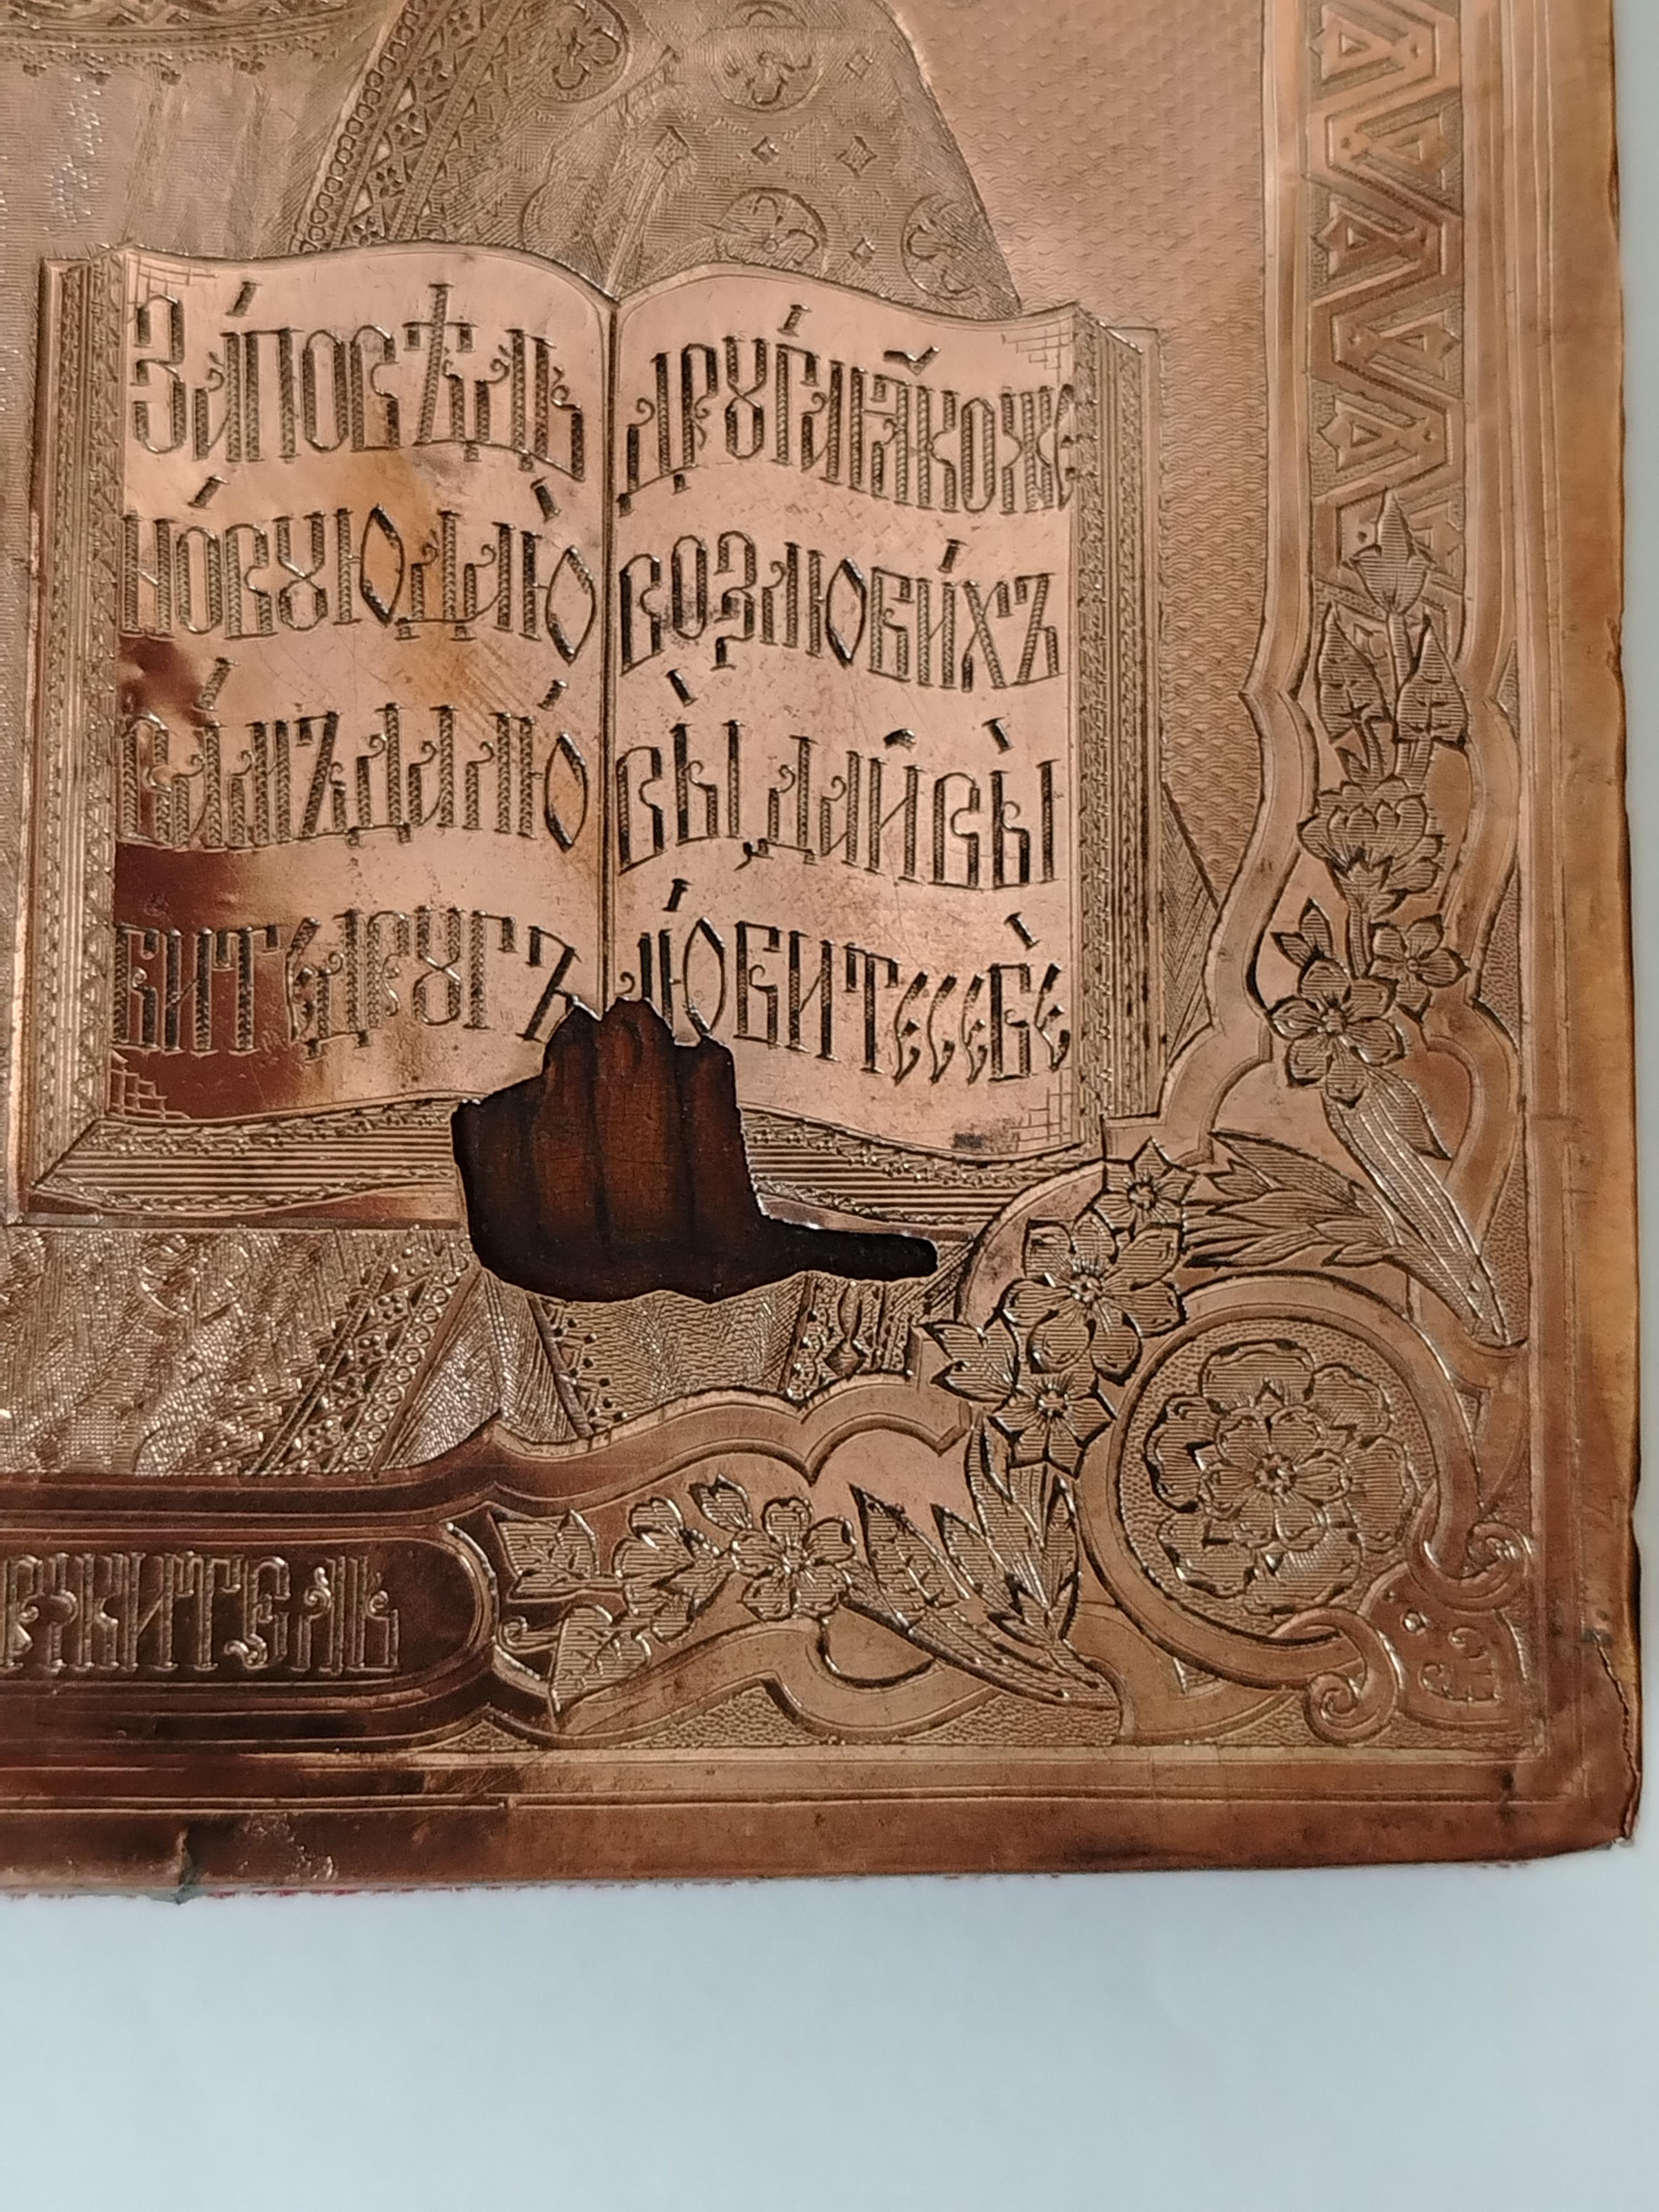 За́повѣдь
но́вꙋю даю̀
ва́мъ да лю́
бите дрꙋгъ
дрꙋ́га ꙗкоже
возлюби́хъ
вы̀, да и вы̀
лю́бите себѐ
ржитель